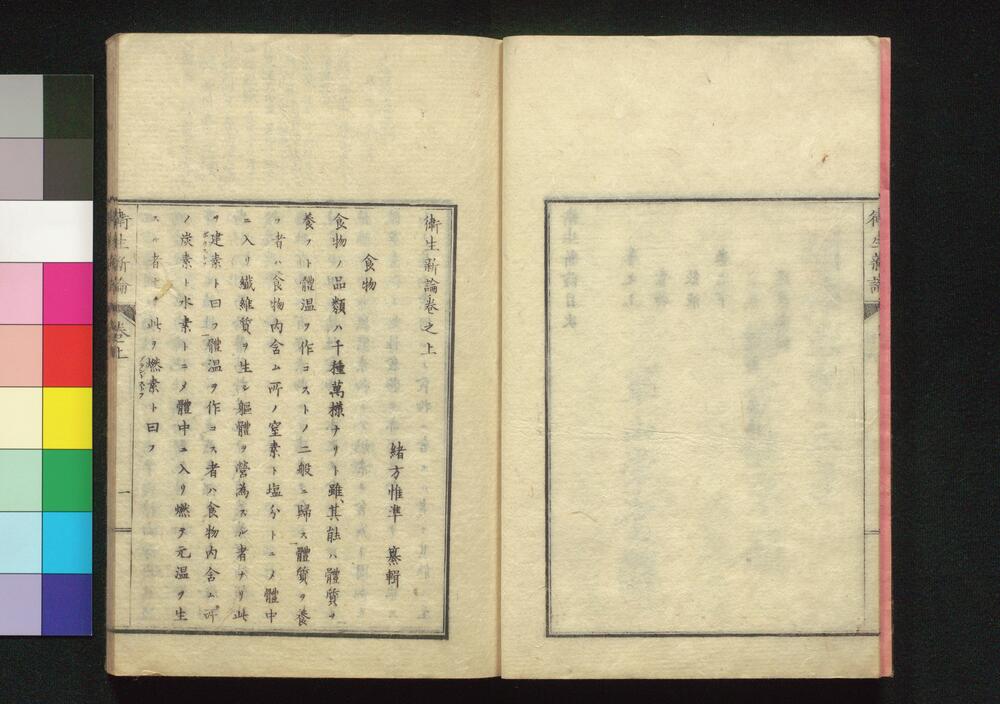 衛生新論
衛生新論卷之上
緒方惟準 纂輯
食物
食物ノ品類ハ千種萬樣ナリト雖其能ハ體質ヲ
養フト體温ヲ作コストノ二般ニ歸ス體質ヲ養
フ者ハ食物内含ム所ノ窒素ト塩分トニメ體中
ニ入リ纖維質ヲ生シ軀體ヲ營為スル者ナリ此
ヲ建素ト曰フ體温ヲ作コス者ハ食物内含ム所
ノ炭素ト水素トニメ體中ニ入リ燃テ元温ヲ生
スル者ナリ此ヲ燃素ト曰フ
衛生新論 卷之上 一